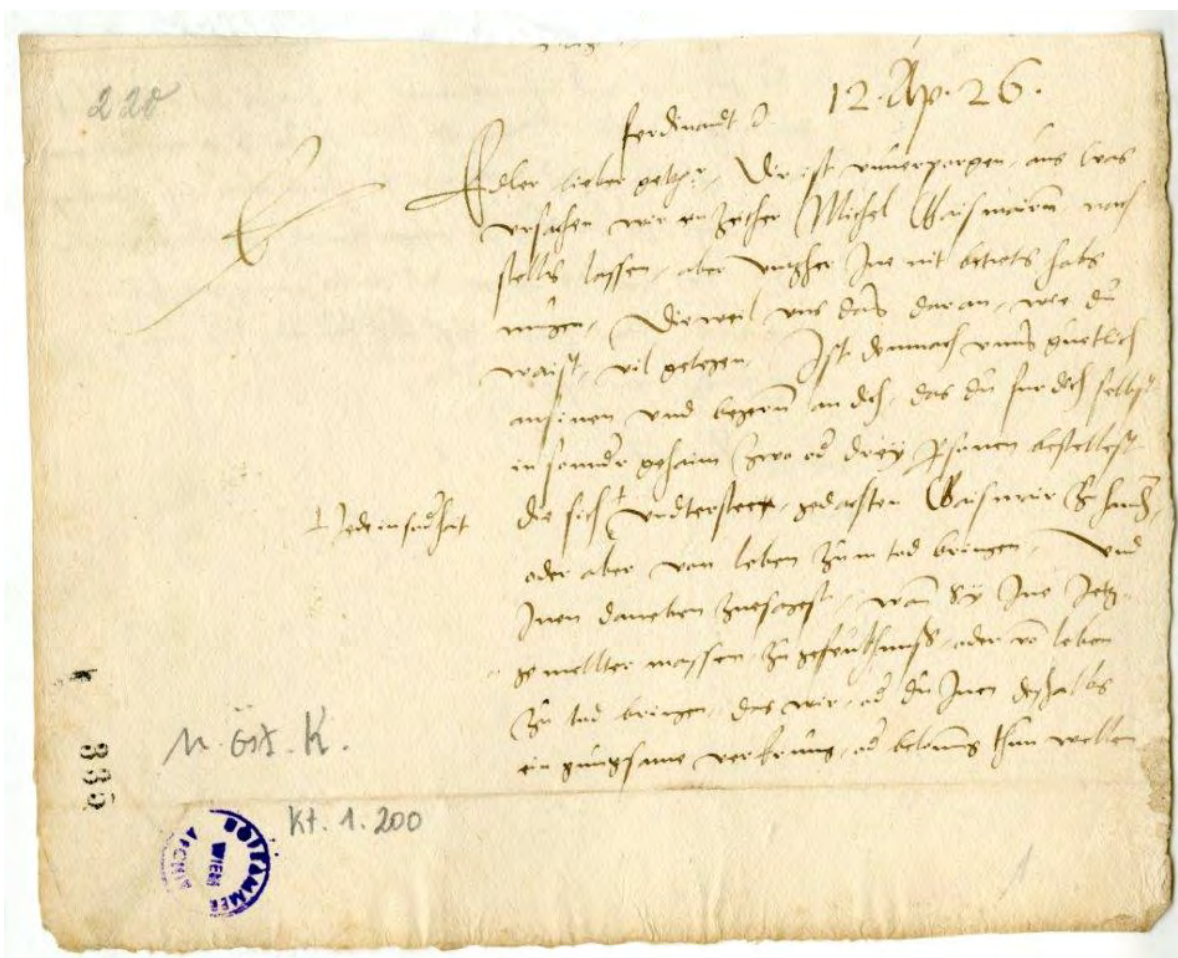 220
12. Ap. 26.
Ferdinandt
Edler lieber getrewr, Dir ist unverporgen, aus was
ursachen wir Michel Gaismairn nach
stellen lassen, aber Ine nit haben
mugen, Dieweil uns dann daran, wie du
waist, vil gelegen, Ist demnach unns guetlich
ansinen und begern an dich, das du fur dich selbs
in sonnder gehaim zwo od drey personen bestellest
die sich undtersteen, gedachten Gaismair
oder aber von leben zum tod bringen, Und
Inen daneben zuesagest, wan Sy Ine Jetz
gemellter massen, zu gefenkhnuss, oder vo leben
zu tod bringen, das wir, od du Inen deshalbs
ein vererung, od belonung thun wellen
N. Öst. K.
Kt. 1. 200
HOFKAMMER
ARCHIV
WIEN
r 335